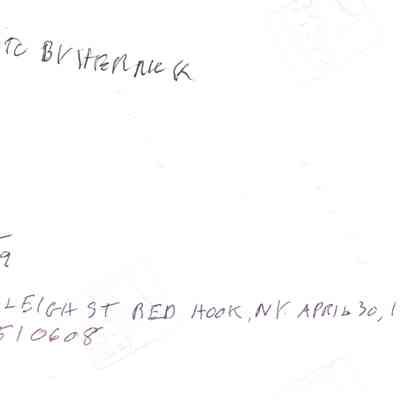 TC BY HER NECK
9
LEIGH ST RED HOOK, NY APRIL 30, 1
510608